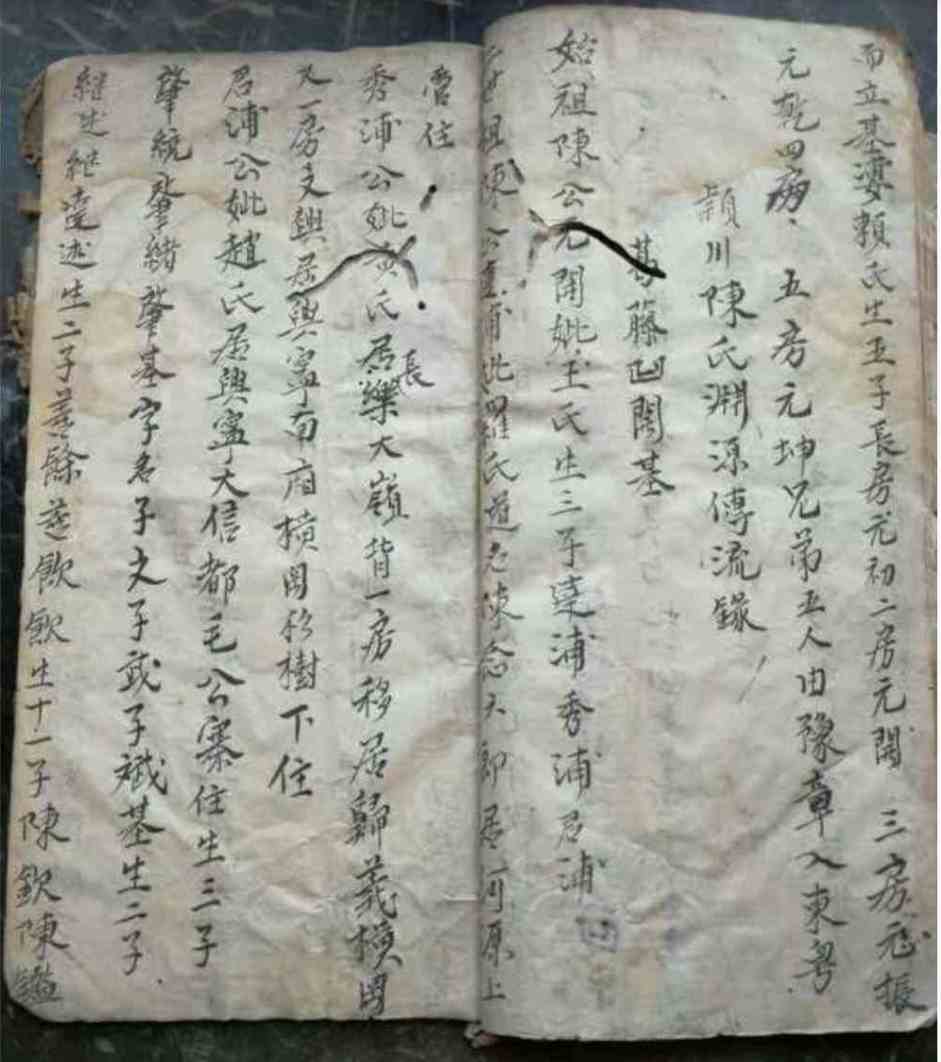 而立基婆賴氏生五子長房元初二房元開 三房元振
元乾四房 五房元坤兄弟五人由豫章入東粵
頴川陳氏淵源傳流錄
藤凹開基
始祖陳公元開妣王氏生三子達浦秀浦君浦
祖陳公達浦妣羅氏道名陳念大郎居河原上
營住
秀浦公妣黃氏居長樂大嶺背一房移居歸義橫岡
又一房文興居興寧南廂橫岡杉樹下住
君浦公妣趙氏居興寧大信都毛公寨住生三子
肇統肇緒肇基字名子文子武子斌基生二子
繼述繼達述生二子 餘 欽欽生十一子陳欽陳鑑